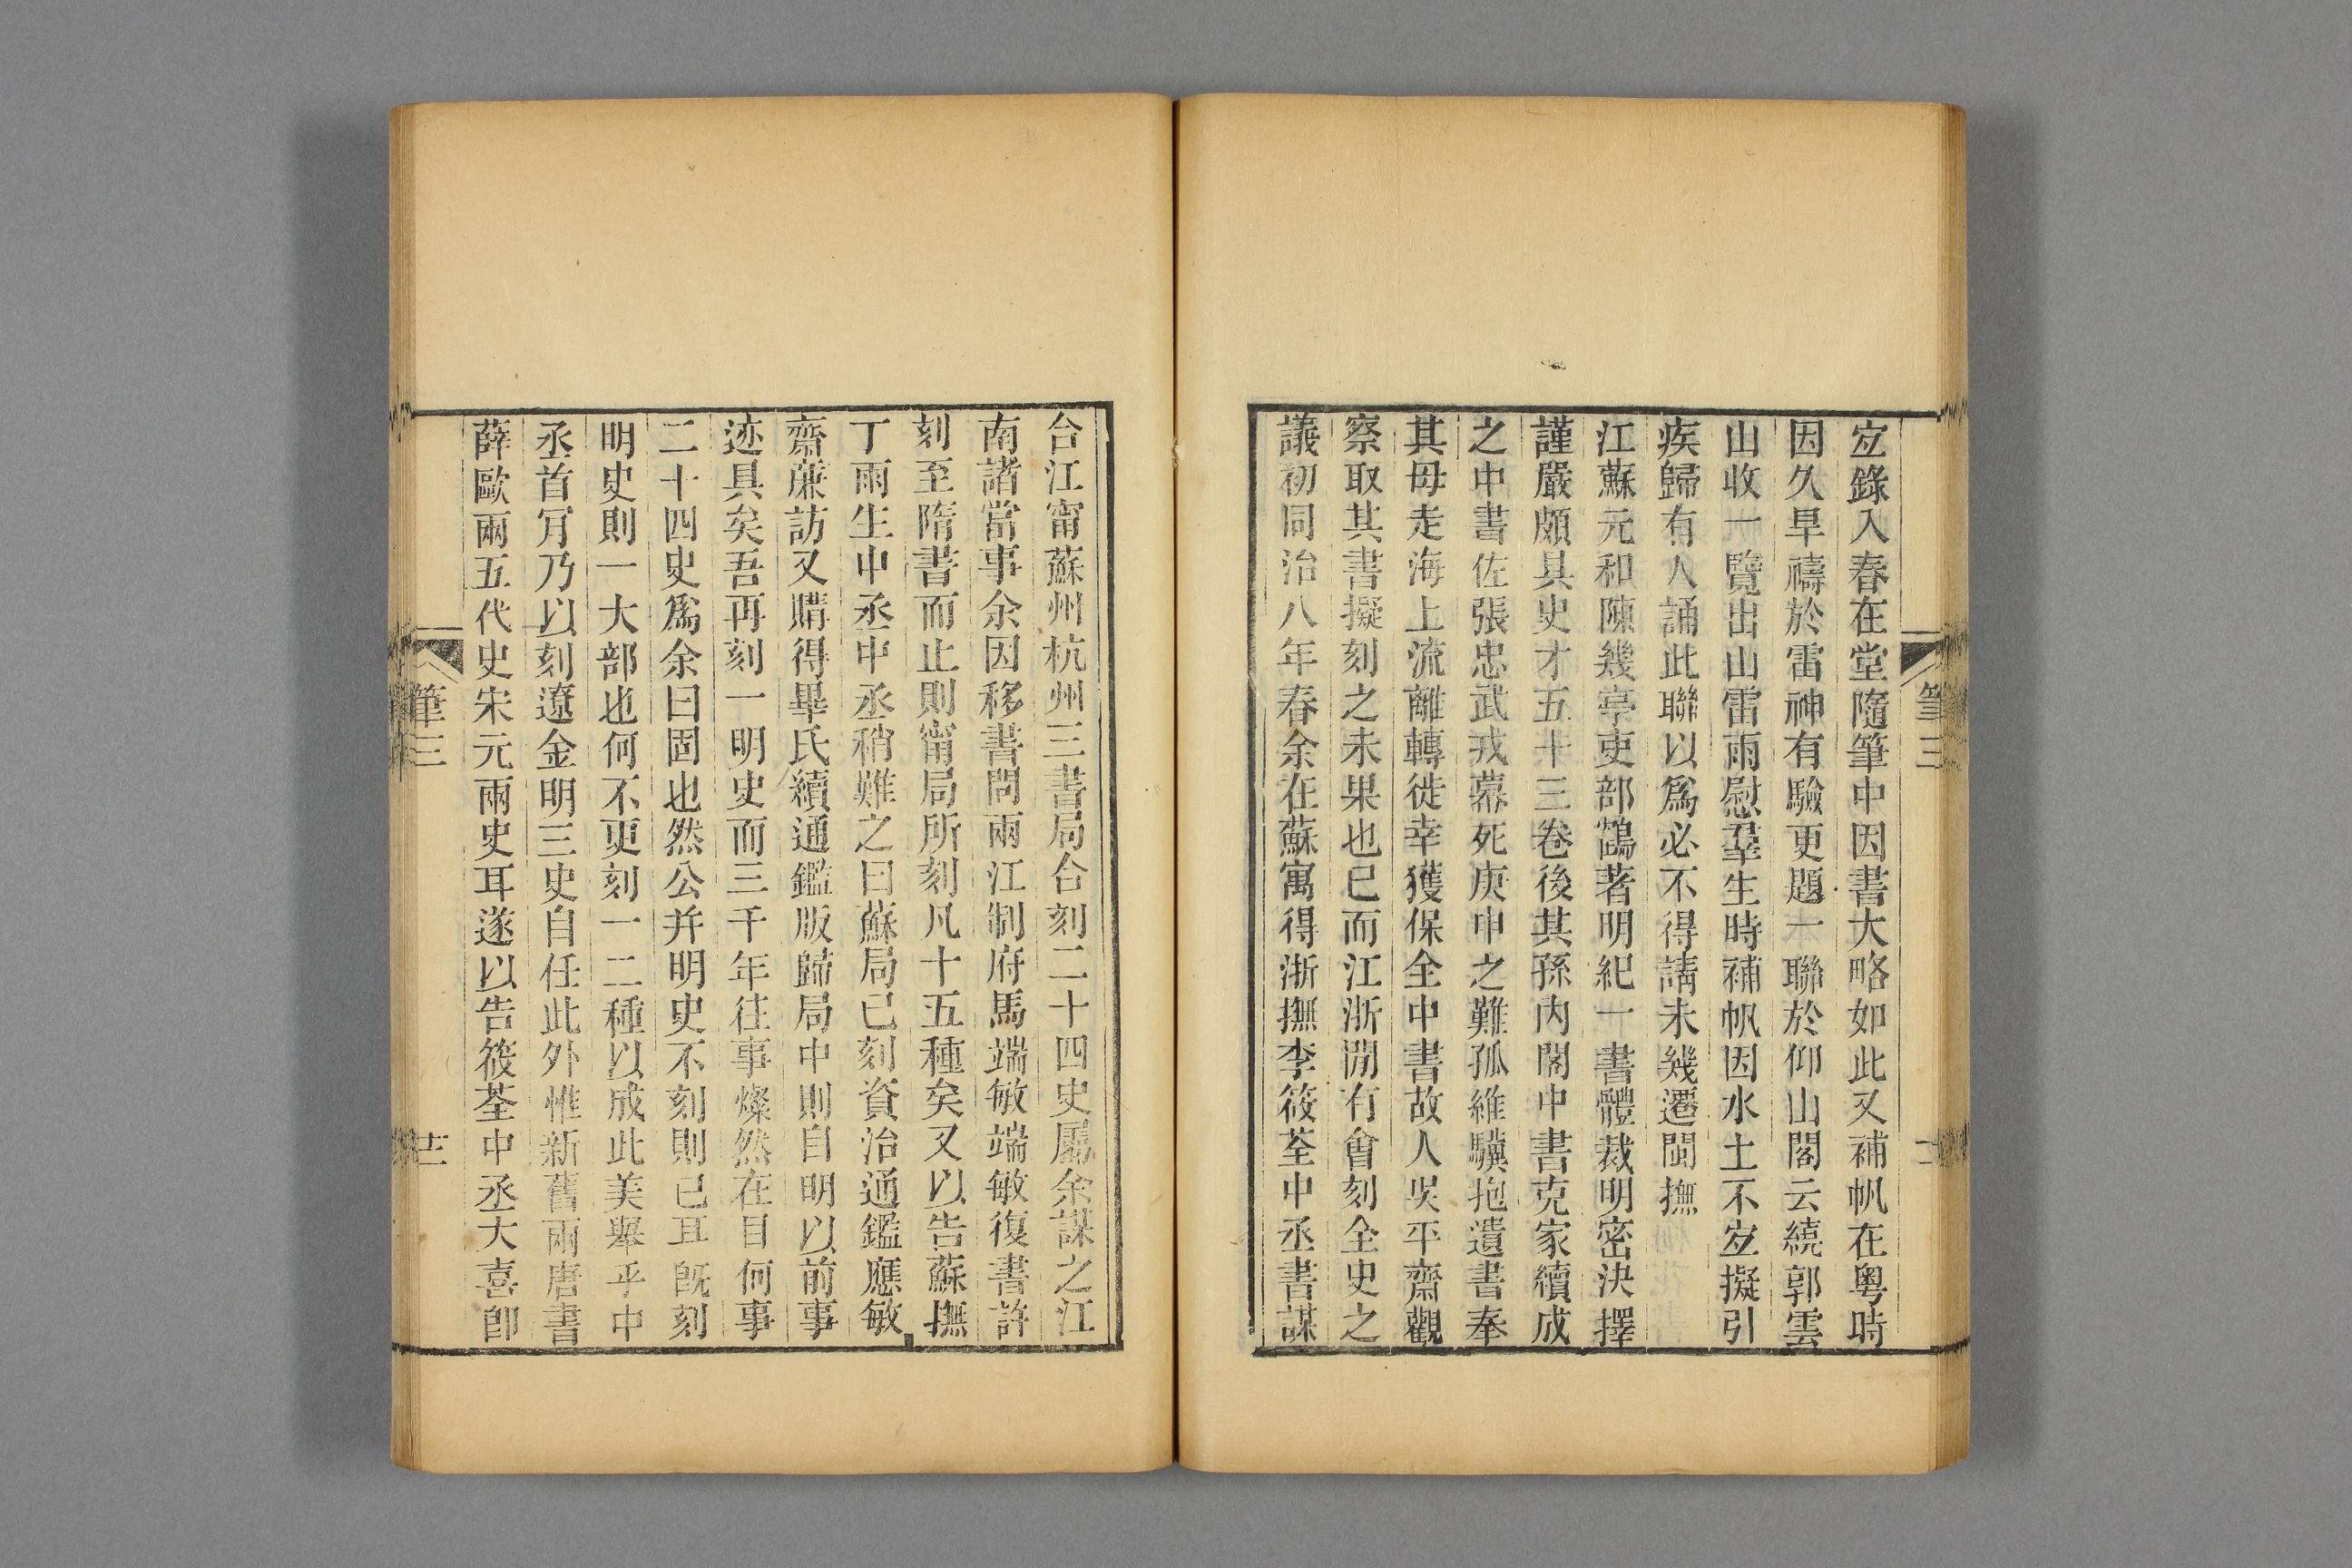 宐錄入春在堂隨筆中因書大略如此又補帆在粵時
因久旱禱於雷神有驗更題一聯於仰山閣云繞郭雲
山收一覽出山雷雨慰羣生時補帆因水土不宐擬引
疾歸有人誦此聯以爲必不得請未幾遷閩撫
江蘇元和陳幾亭吏部鶴著明紀一書體裁明密決擇
謹嚴頗具史才五十三卷後其孫內閣中書克家續成
之中書佐張忠武戎幕死庚申之難孤維驥抱遺書奉
其母走海上流離轉徙幸獲保全中書故人吳平齋觀
察取其書擬刻之未果也已而江浙閒有會刻全史之
議初同治八年春余在蘇寓得浙撫李筱荃中丞書謀
筆三
合江甯蘇州杭州三書局合刻二十四史屬余謀之江
南諸當事余因移書問兩江制府馬端敏端敏復書許
刻至隋書而止則甯局所刻凡十五種矣又以告蘇撫
丁雨生中丞中丞稍難之曰蘇局已刻資治通鑑應敏
齋廉訪又購得畢氏續通鑑版歸局中則自明以前事
迹具矣吾再刻一明史而三千年往事燦然在目何事
二十四史爲余曰固也然公并明史不刻則已且旣刻
明史則一大部也何不更刻一二種以成此美舉乎中
丞首肎乃以刻遼金明三史自任此外惟新舊兩唐書
薛歐兩五代史宋元兩史耳遂以告筱荃中丞大喜卽
筆三